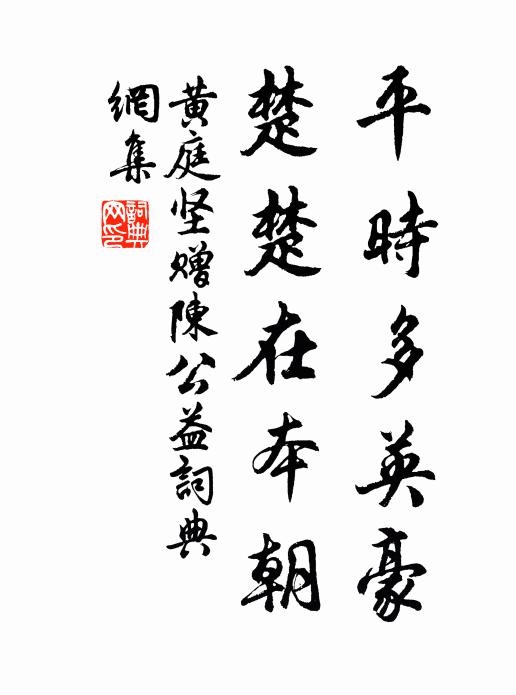 平時多英豪
楚楚在本朝
黄庭坚赠陳公益詞典
網集
詞典网印